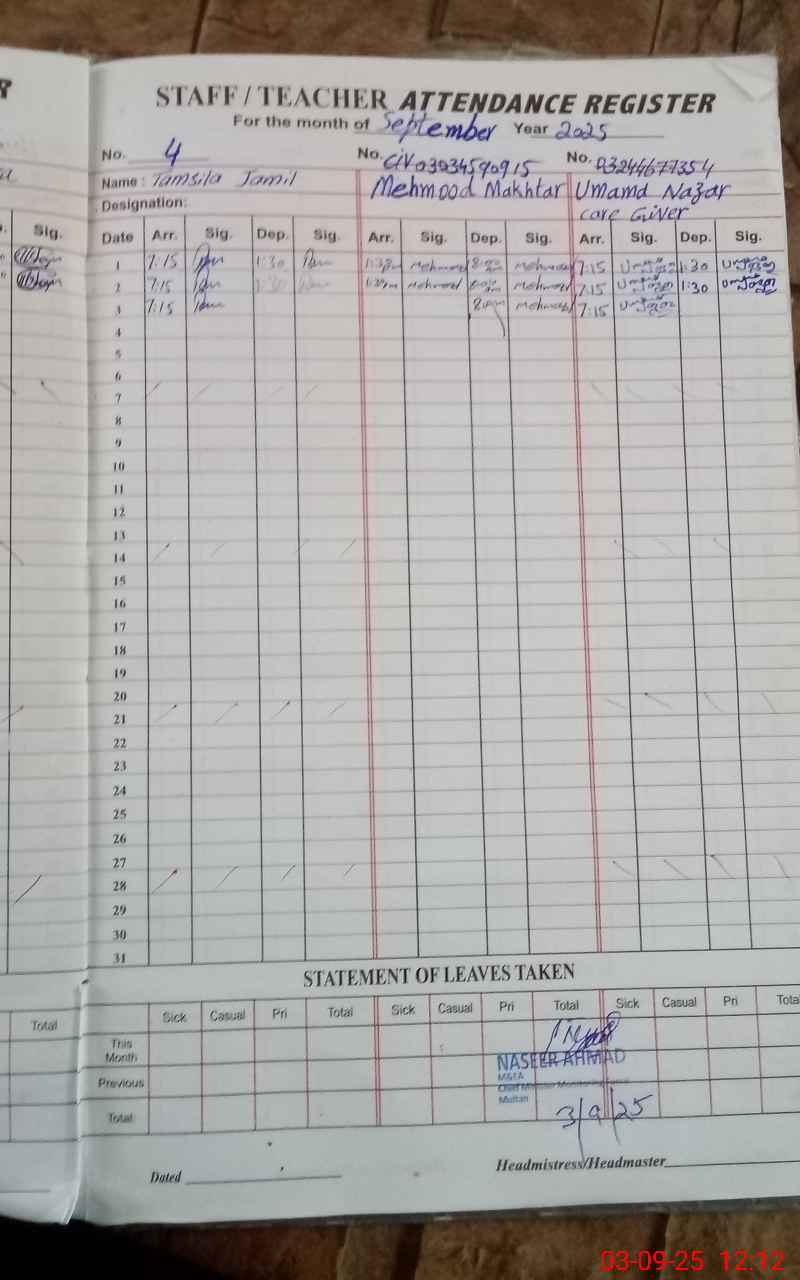 STAFF / TEACHER ATTENDANCE REGISTER
For the month of September Year 2025
No. 4 No. Civ 03034590915 No. 03244677354
Name: Tamsila Jamil Mehmood Makhtar Umamd Nazar
Designation: care Giver
Sig. Date Arr. Sig. Dep. Sig. Arr. Sig. Dep. Sig. Arr. Sig. Dep. Sig.
1 7:15 1:30 Mehmood Mehmood 7:15 1:30
2 7:15 1:30 Mehmood Mehmood 7:15 1:30
3 7:15 Mehmood 7:15
4
5
6
7
8
9
10
11
12
13
14
15
16
17
18
19
20
21
22
23
24
25
26
27
28
29
30
31
STATEMENT OF LEAVES TAKEN
Total Sick Casual Pri Total Sick Casual Pri Total Sick Casual Pri Total
This Month
NASEER AHMAD
M&EA
Previous
Chief Minister Monitoring
Multan
Total
3/9/25
Dated Headmistress/Headmaster
03-09-25 12:12